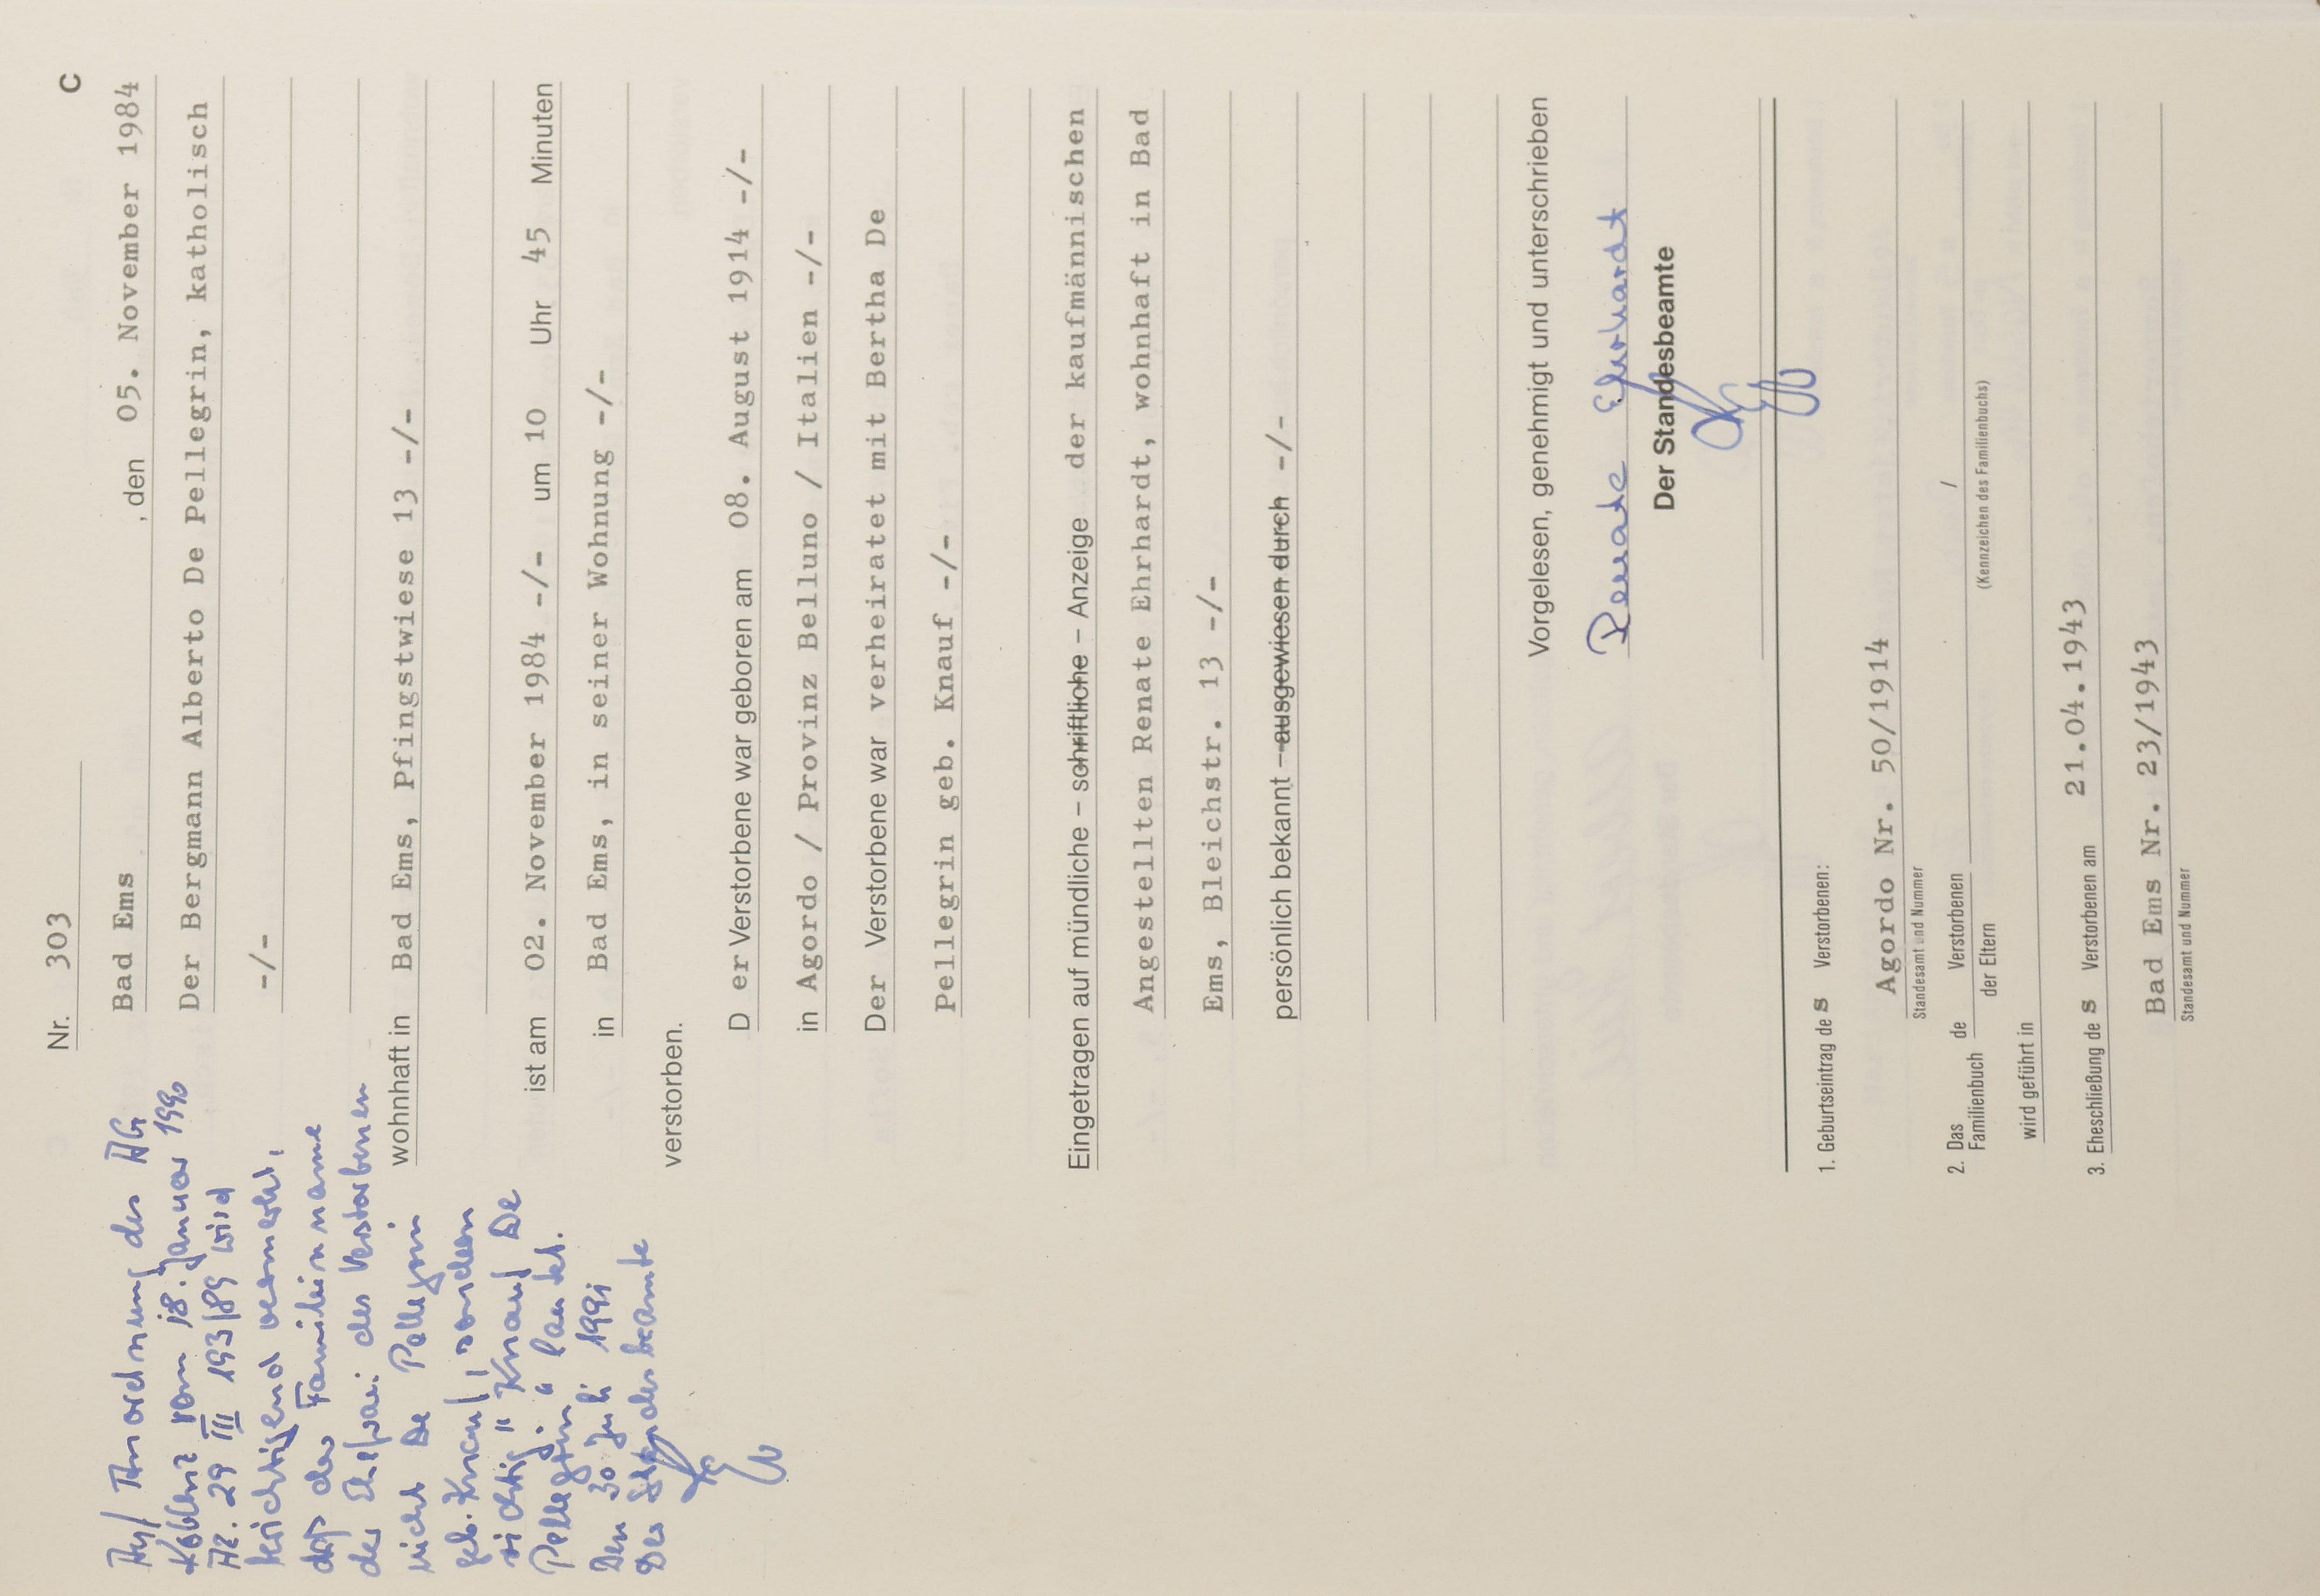 Nr. 303
C
Bad Ems , den 05. November 1984
Der Bergmann Alberto De Pellegrin, katholisch
-/-
wohnhaft in Bad Ems, Pfingstwiese 13 -/-
ist am 02. November 1984 -/- um 10 Uhr 45 Minuten
in Bad Ems, in seiner Wohnung -/-
verstorben.
D er Verstorbene war geboren am 08. August 1914 -/-
in Agordo / Provinz Belluno / Italien -/-
Der Verstorbene war verheiratet mit Bertha De
Pellegrin geb. Knauf -/-
Eingetragen auf mündliche – schriftliche – Anzeige der kaufmännischen
Angestellten Renate Ehrhardt, wohnhaft in Bad
Ems, Bleichstr. 13 -/-
persönlich bekannt – ausgewiesen durch -/-
Vorgelesen, genehmigt und unterschrieben
Renate Ehrhardt
Der Standesbeamte
1. Geburtseintrag des Verstorbenen:
Agordo Nr. 50/1914
Standesamt und Nummer
2. Das Familienbuch de Verstorbenen /
der Eltern
(Kennzeichen des Familienbuchs)
wird geführt in
3. Eheschließung des Verstorbenen am 21.04.1943
Bad Ems Nr. 23/1943
Standesamt und Nummer
Auf Anordnung des AG
Koblenz vom 18. Januar 1990
Az. 29 III 193/89 wird
berichtigend vermerkt,
daß der Familienname
der Ehefrau des Verstorbenen
nicht De Pellegrin
geb. Knauf, sondern
richtig "Knauf De
Pellegrin" lautet.
Den 30. Juli 1991
Der Standesbeamte